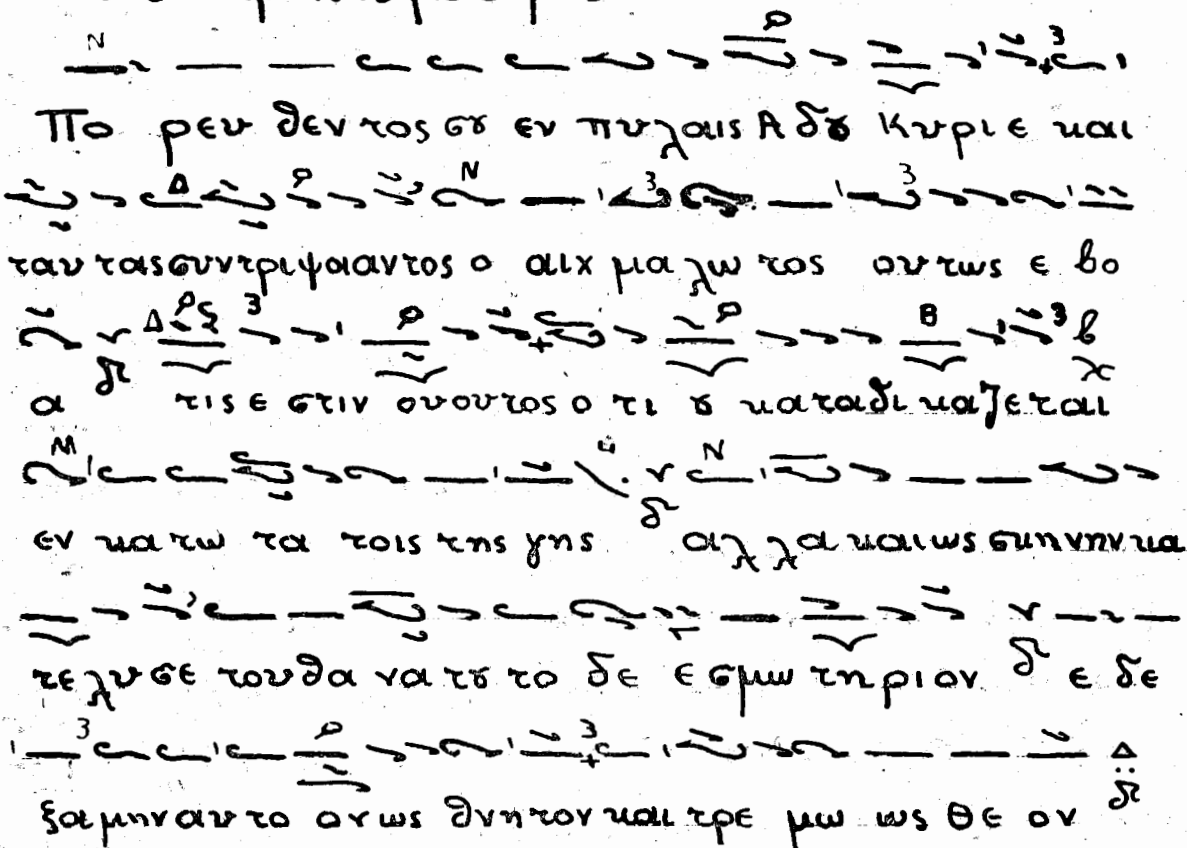 Πο ρευ θεν τος σȣ εν πυλαις Α δȣ Κυρι ε και
ταυ τας συντριψααντος ο αιχ μα λω τος ουτως ε βο
α τις ε στιν ουουτος ο τι ȣ καταδι καζεται
εν κα τω τα τοις της γης αλ λα και ως σκηνην κα
τελυσε του θα να τȣ το δε ε σμω τηριον ε δε
ξαμην αυ το ον ως θνητον και τρε μω ως θε ον